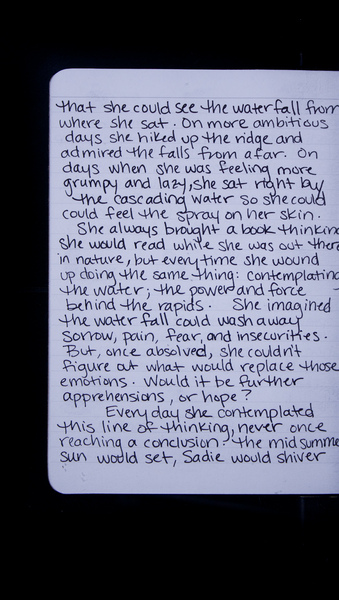 that she could see the waterfall from
where she sat. On more ambitious
days she hiked up the ridge and
admired the falls from afar. On
days when she was feeling more
grumpy and lazy, she sat right by
the cascading water so she could
could feel the spray on her skin.
She always brought a book thinking
she would read while she was out there
in nature, but every time she wound
up doing the same thing: contemplating
the water; the power and force
behind the rapids. She imagined
the water fall could wash away
sorrow, pain, fear, and insecurities.
But, once absolved, she couldn't
figure out what would replace those
emotions. Would it be further
apprehensions, or hope?
Every day she contemplated
this line of thinking, never once
reaching a conclusion. The mid summe
sun would set, Sadie would shiver